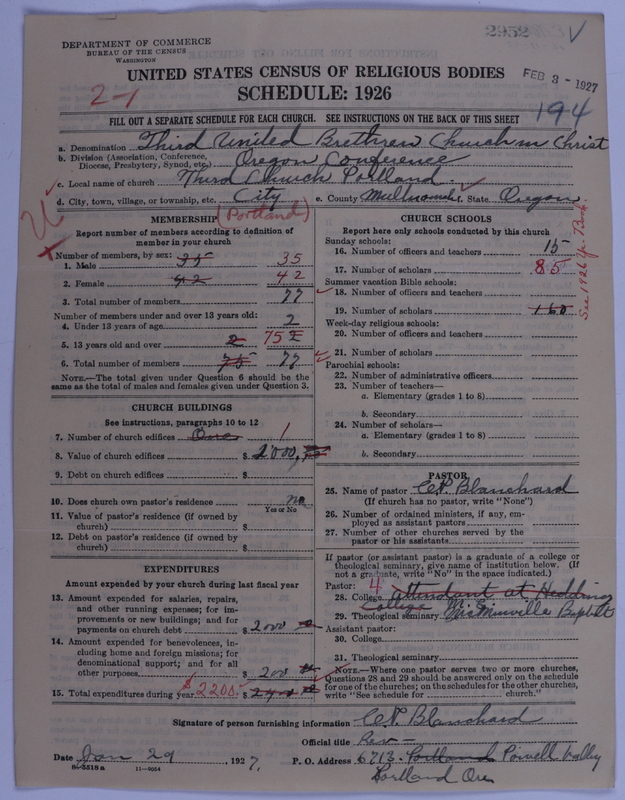 2952
DEPARTMENT OF COMMERCE
BUREAU OF THE CENSUS
WASHINGTON
UNITED STATES CENSUS OF RELIGIOUS BODIES
FEB 3 - 1927
SCHEDULE: 1926
2-1
194
FILL OUT A SEPARATE SCHEDULE FOR EACH CHURCH. SEE INSTRUCTIONS ON THE BACK OF THIS SHEET
a. Denomination Third United Brethren Church in Christ
b. Division (Association, Conference, Diocese, Presbytery, Synod, etc.) Oregon Conference
c. Local name of church Third Church Portland
d. City, town, village, or township, etc. City e. County f. State Oregon
(Portland)
MEMBERSHIP
Report number of members according to definition of member in your church
Number of members, by sex:
1. Male 35 35
2. Female 42 42
3. Total number of members 77
Number of members under and over 13 years old:
4. Under 13 years of age 2
5. 13 years old and over 2 75
6. Total number of members 75 77
NOTE.—The total given under Question 6 should be the same as the total of males and females given under Question 3.
CHURCH BUILDINGS
See instructions, paragraphs 10 to 12
7. Number of church edifices One 1
8. Value of church edifices $ 2000
9. Debt on church edifices $
10. Does church own pastor's residence no
Yes or No
11. Value of pastor's residence (if owned by church) $
12. Debt on pastor's residence (if owned by church) $
EXPENDITURES
Amount expended by your church during last fiscal year
13. Amount expended for salaries, repairs, and other running expenses; for improvements or new buildings; and for payments on church debt $ 2000
14. Amount expended for benevolences, including home and foreign missions; for denominational support; and for all other purposes $ 200
15. Total expenditures during year $2200 $
CHURCH SCHOOLS
Report here only schools conducted by this church
Sunday schools:
16. Number of officers and teachers 15
17. Number of scholars 85
See 1926 Yr. Book
Summer vacation Bible schools:
18. Number of officers and teachers
19. Number of scholars 160
Week-day religious schools:
20. Number of officers and teachers
21. Number of scholars
Parochial schools:
22. Number of administrative officers
23. Number of teachers—
a. Elementary (grades 1 to 8)
b. Secondary
24. Number of scholars—
a. Elementary (grades 1 to 8)
b. Secondary
PASTOR
25. Name of pastor C.P. Blanchard
(If church has no pastor, write "None")
26. Number of ordained ministers, if any, employed as assistant pastors
27. Number of other churches served by the pastor or his assistants
If pastor (or assistant pastor) is a graduate of a college or theological seminary, give name of institution below. (If not a graduate, write "No" in the space indicated.)
Pastor: 4
28. College attendant at Hedding College
29. Theological seminary McMinnville Baptist
Assistant pastor:
30. College
31. Theological seminary
NOTE.—Where one pastor serves two or more churches, Questions 28 and 29 should be answered only on the schedule for one of the churches; on the schedules for the other churches, write "See schedule for church."
Signature of person furnishing information C.P. Blanchard
Official title Rev
Date Jan 29, 1927. P. O. Address 6713 Portland Powell Valley
Portland Ore
8—5518a 11—9054